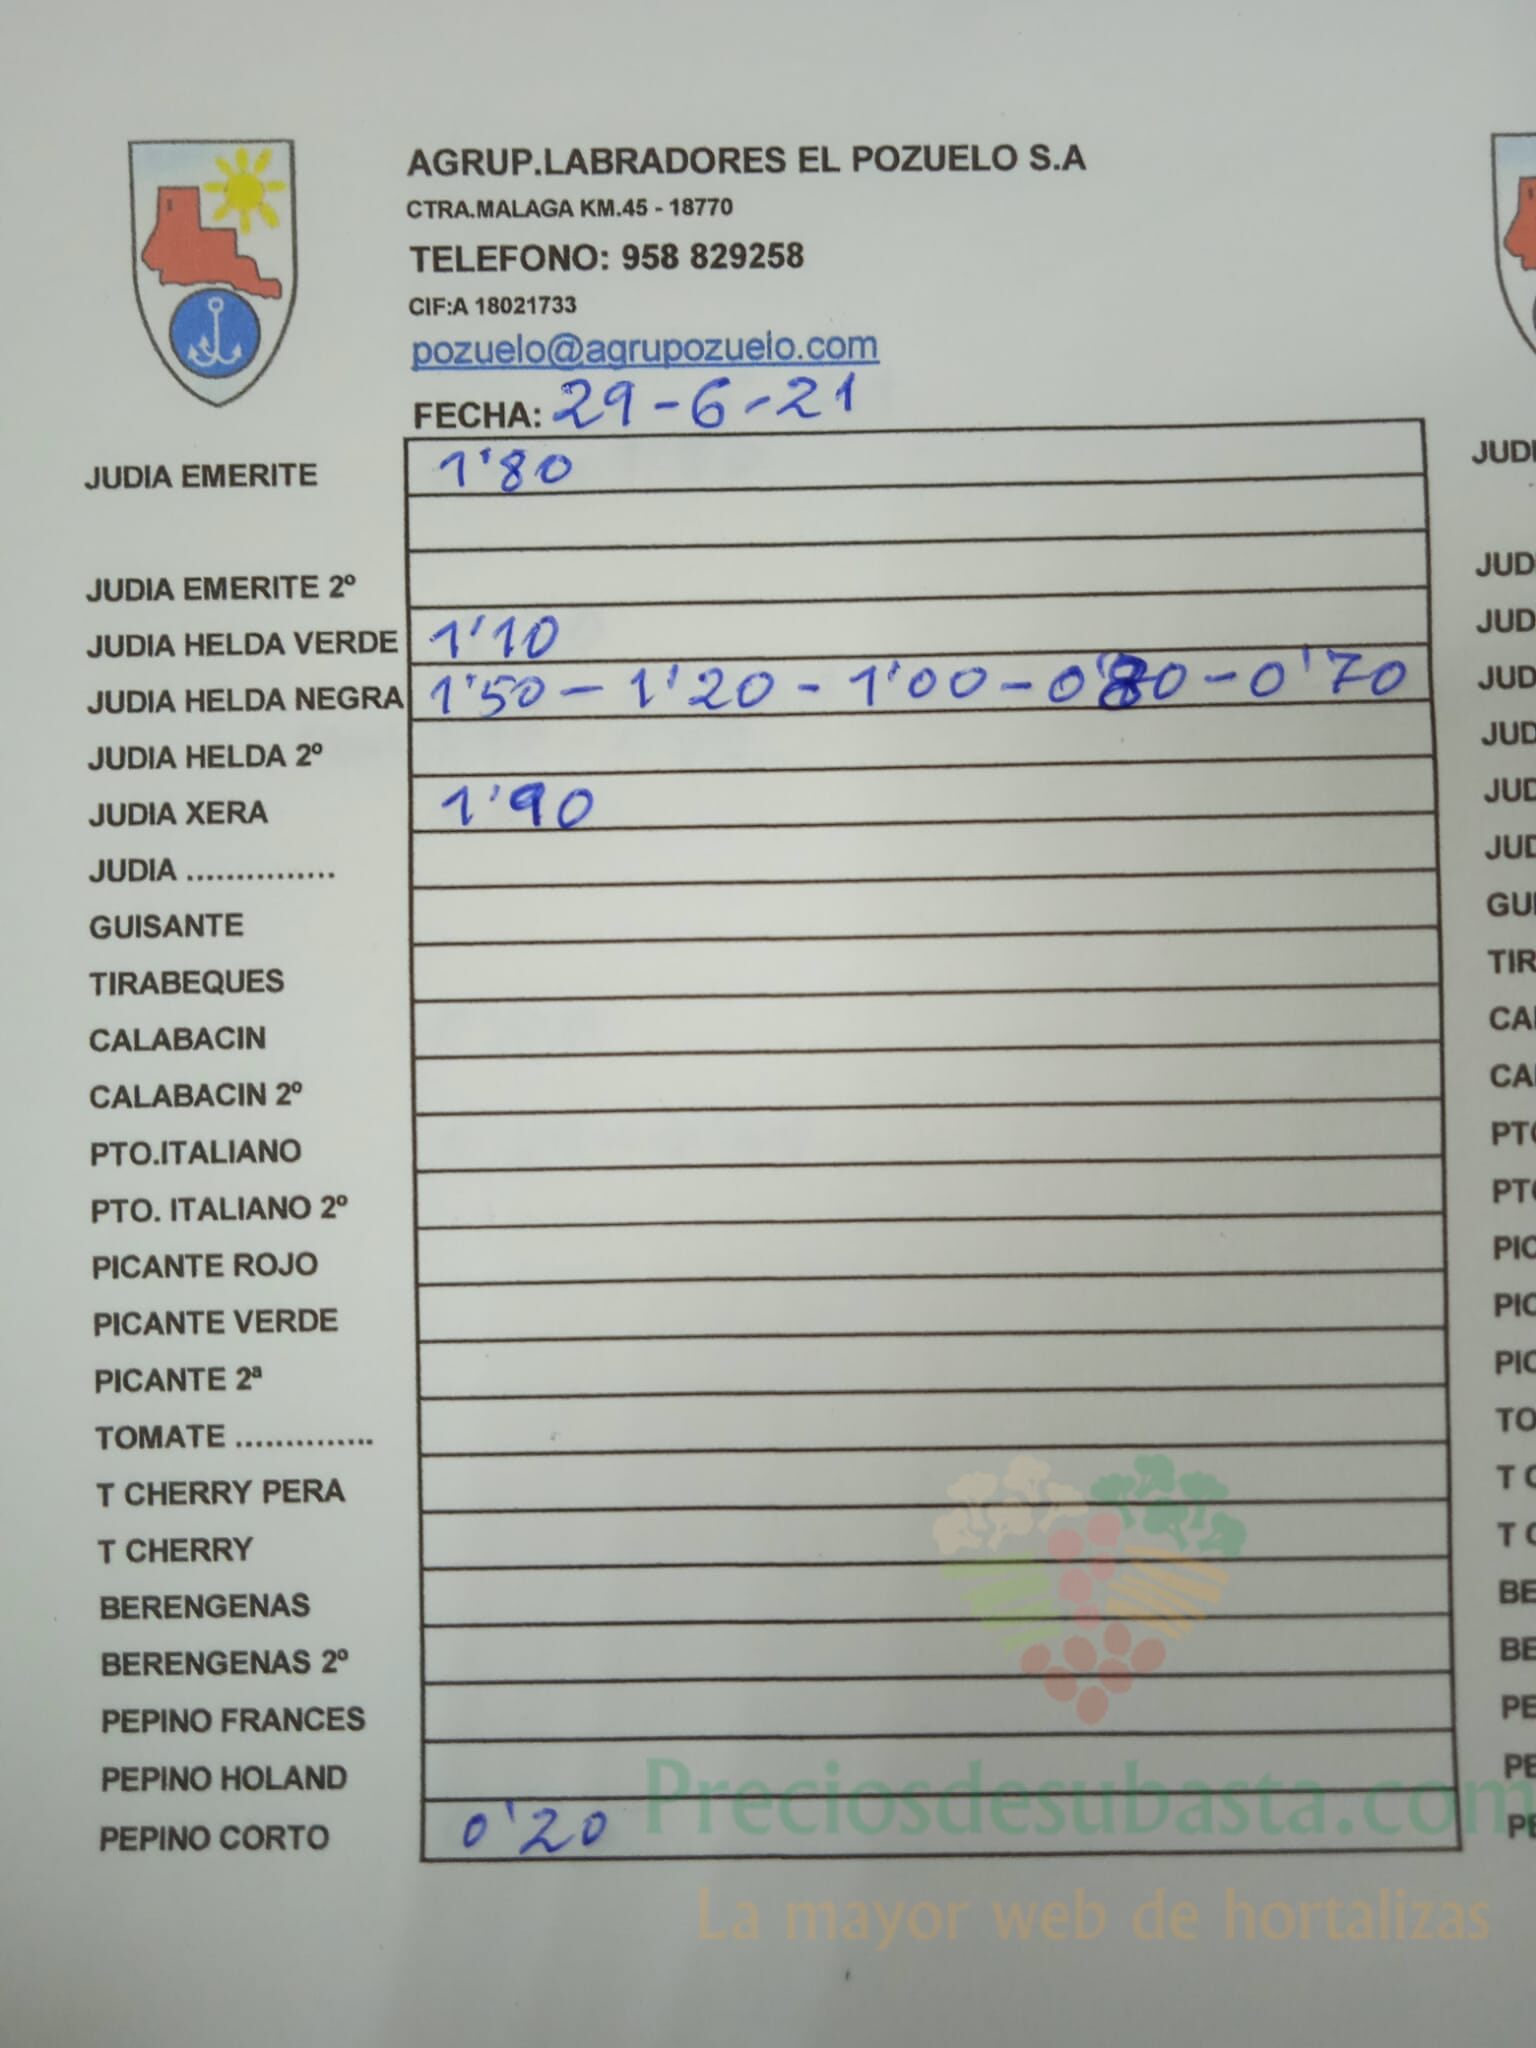 AGRUP.LABRADORES EL POZUELO S.A
CTRA.MALAGA KM.45 - 18770
TELEFONO: 958 829258
CIF:A 18021733
pozuelo@agrupozuelo.com
FECHA: 29-6-21
JUDIA EMERITE 1'80
JUDIA EMERITE 2º
JUDIA HELDA VERDE 1'10
JUDIA HELDA NEGRA 1'50 - 1'20 - 1'00 - 0'80 - 0'70
JUDIA HELDA 2º
JUDIA XERA 1'90
JUDIA ...............
GUISANTE
TIRABEQUES
CALABACIN
CALABACIN 2º
PTO.ITALIANO
PTO. ITALIANO 2º
PICANTE ROJO
PICANTE VERDE
PICANTE 2ª
TOMATE ..............
T CHERRY PERA
T CHERRY
BERENGENAS
BERENGENAS 2º
PEPINO FRANCES
PEPINO HOLAND
PEPINO CORTO 0'20
Preciosdesubasta.com
La mayor web de hortalizas